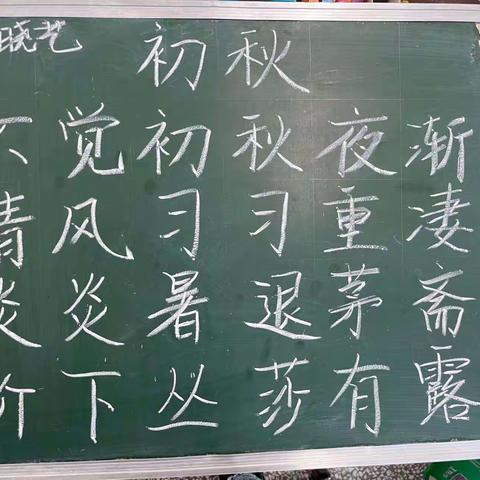 晓艺
初秋
不觉初秋夜渐
清风习习重凄
炎炎暑退茅斋
阶下丛莎有露